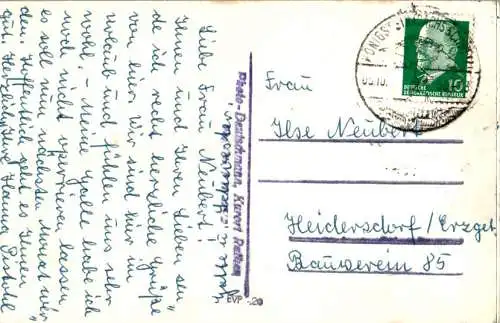 Liebe Frau Neubert!
Ihnen und Ihren Lieben sen
de ich recht herzliche Grüße
von hier. Wir sind hier im
Urlaub und fühlen uns sehr
wohl. Meine Galle habe ich
noch nicht operieren lassen
es soll nun nächsten Monat wer
den. Hoffentlich geht es Ihnen
gut. Herzlichst Ihre Hanna
Photo-Deutschmann, Kurort Rathen
EVP -.20
KÖNIGST
DEUTSCHE
DEMOKRATISCHE REPUBLIK
10
Frau
Ilse Neubert
Heidersdorf/Erzgeb
Bauverein 85